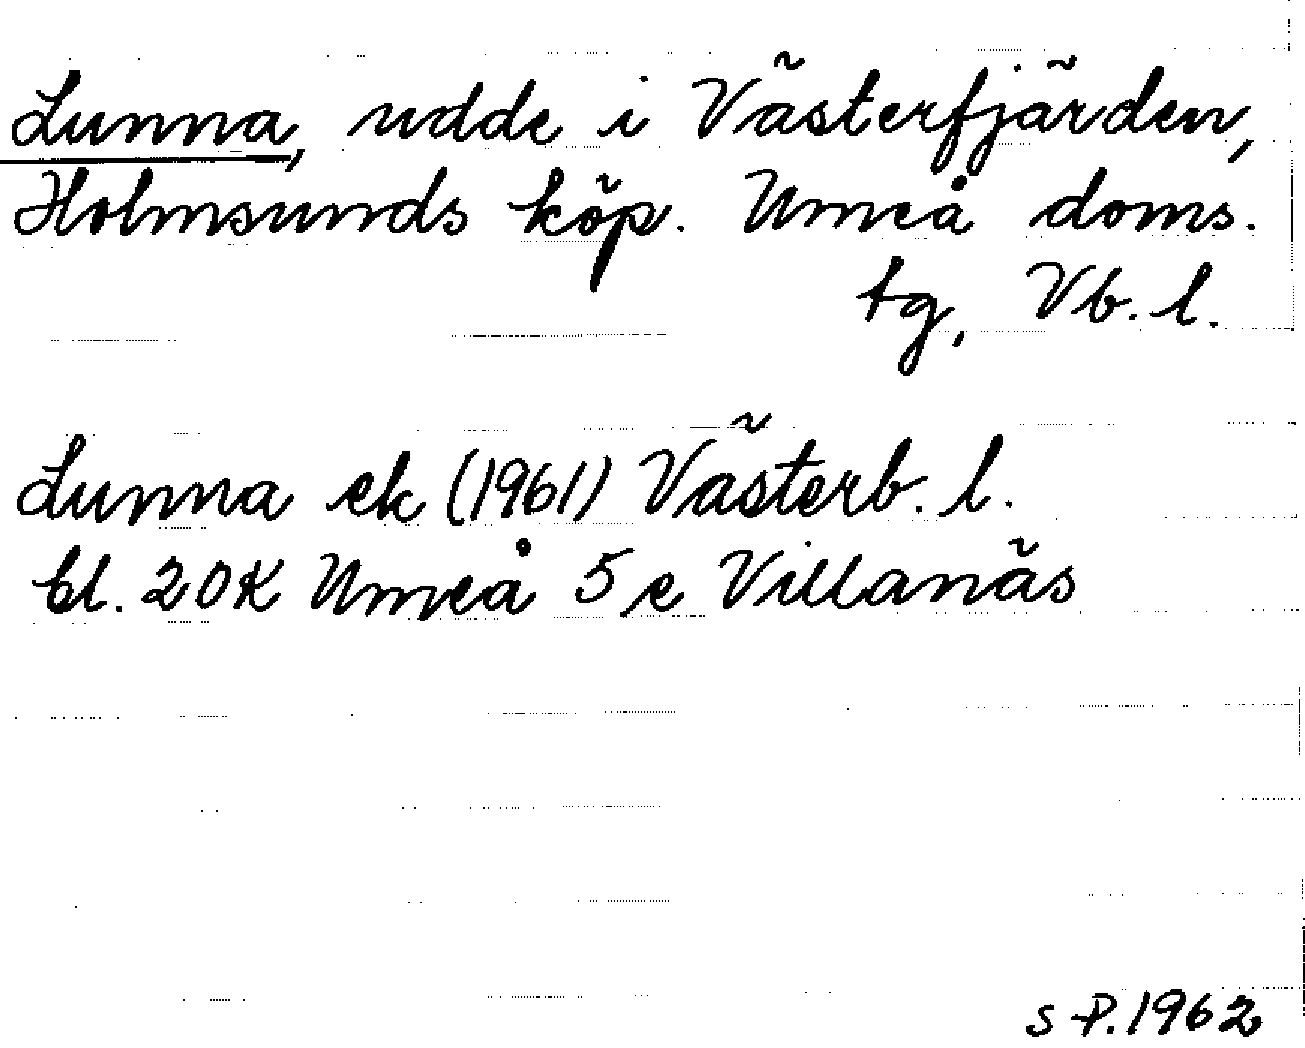 Lunna, udde i Västerfjärden,
Holmsunds köp. Umeå doms.
tg, Vb. l.
Lunna ek (1961) Västerb. l.
bl. 20K Umeå 5e Villanäs
S-P. 1962